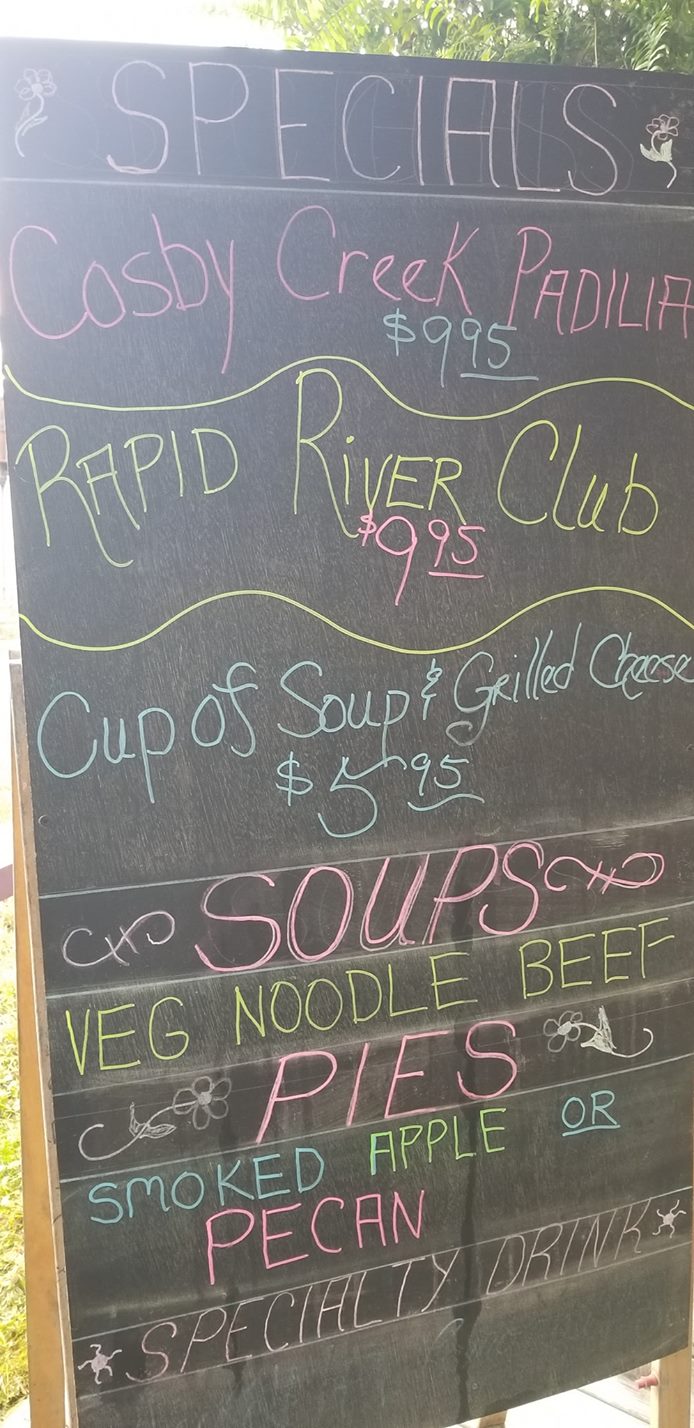 SPECIALS
Cosby Creek PADILIA
$9.95
RAPID RiVER Club
$9.95
Cup of Soup & Grilled Cheese
$5.95
SOUPS
VEG NOODLE BEEF
PIES
SMOKED APPLE OR
PECAN
SPECIALTY DRINK